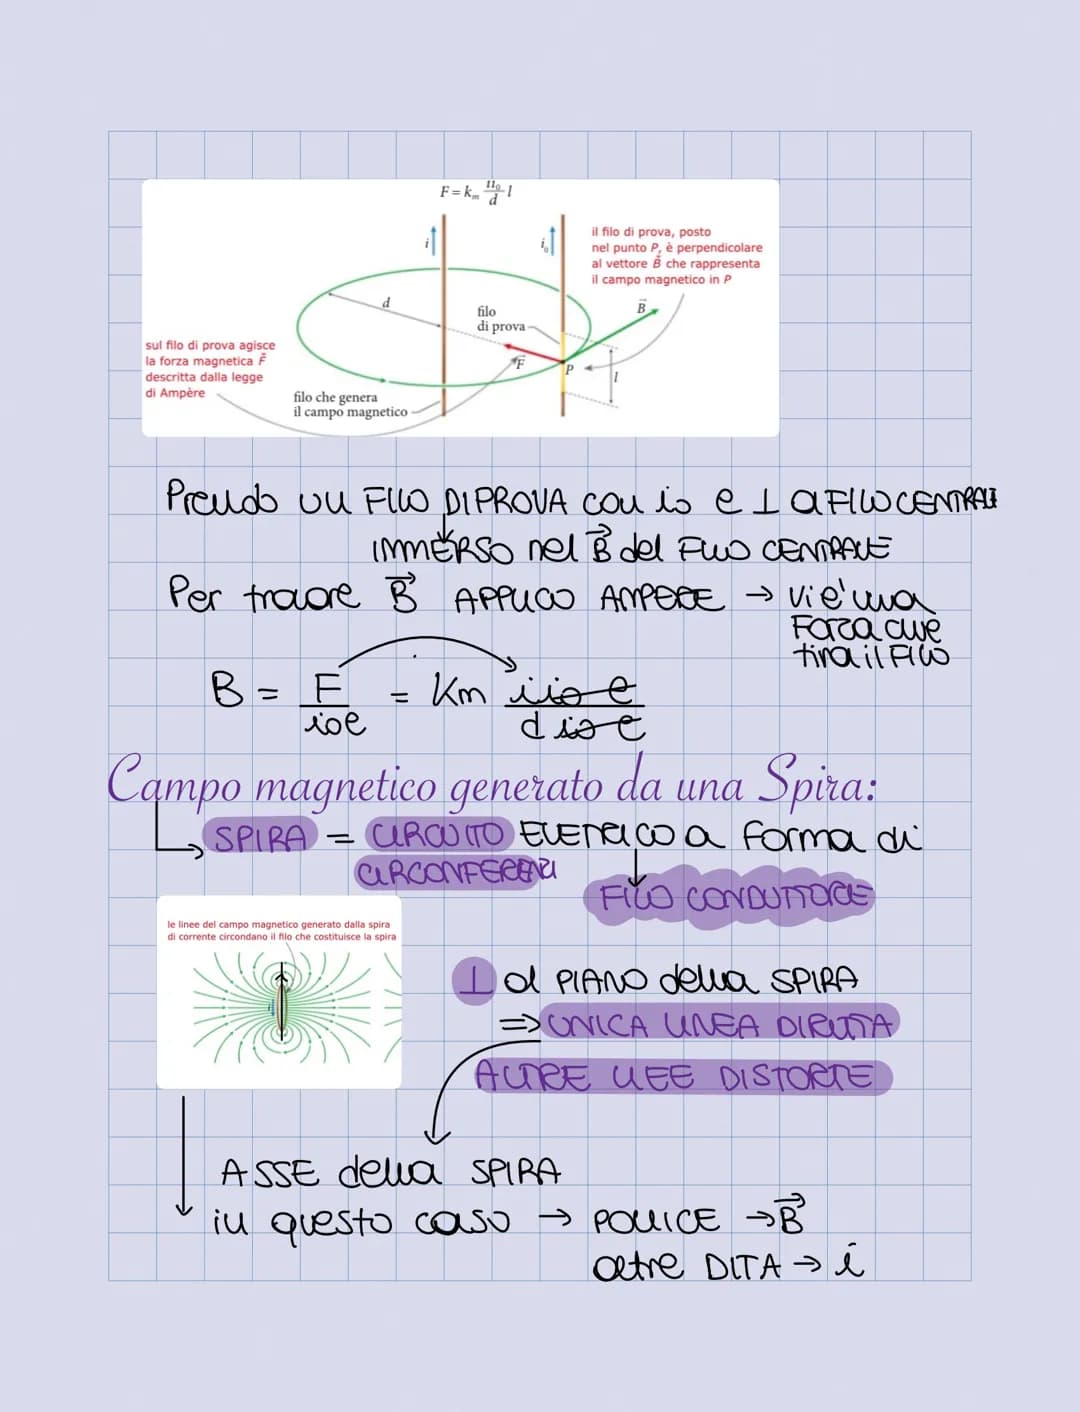 F = kₘ ii₀/d l
i
i₀
il filo di prova, posto
nel punto P, è perpendicolare
al vettore B⃗ che rappresenta
il campo magnetico in P
d
filo
di prova
B⃗
sul filo di prova agisce
la forza magnetica F⃗
descritta dalla legge
di Ampère
F⃗
P
l
filo che genera
il campo magnetico
Prendo un FILO DI PROVA con i₀ e ⊥ a FILO CENTRALE
IMMERSO nel B⃗ del FILO CENTRALE
Per trovare B⃗ APPLICO AMPERE → vi è una
Forza che
tira il FILO
B = F/i₀l = Km i i₀ l/d i₀ l
Campo magnetico generato da una Spira:
SPIRA = CIRCUITO ELETTRICO a forma di
CIRCONFERENZA
FILO CONDUTTORE
le linee del campo magnetico generato dalla spira
di corrente circondano il filo che costituisce la spira
⊥ al PIANO della SPIRA
⇒ UNICA LINEA DIRITTA
ALTRE LIEE DISTORTE
ASSE della SPIRA
in questo caso → POLLICE → B⃗
altre DITA → i